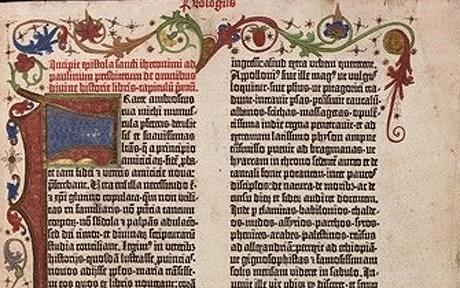 Prologus
Incipit epistola sancti iheronimi ad
paulinum presbiterum de omnibus
divine historie libris. capitulū prīmū.
Frater ambrosius
tua michi munuscula
perferens. detulit
sil' et suavissimas
lrās. q̄ a principio
amiciciaɤ. fidē p̄bate
iam fidei et veteris amicicie nova:
p̄ferebant. Vera em̄ illa necessitudo ē.
et xp̄i glutino copulata. quam non utilitas
rei familiaris. nō p̄ncia tantum
corporɤ. nō subdola et palpās adulatō.
sed dei timor. et divinaɤ scripturarum
studia conciliant. Legim' in veteribus
historijs. quosdā lustrasse p̄uincias.
novos adijsse p̄los. maria trāsisse.
ut eos quos ex libris noverant: coram
ingressi aliud extra urbem quererent.
Apolloni' sive ille mag' ut vulgus
loquitur. sive ph̄us. ut pitagorici tradunt.
intravit p̄sas. p̄trāsivit caucasū.
albanos. scithas. massagetas. opulētissima
indie regna penetravit: et ad
extremum latissimo physon amne
trāsmisso puenit ad bragmanas. ut
hyarcam in throno sedentē aureo et de
tantali fonte potantem. inter paucos
discipl'os: de natura. de moribus. ac de
cursu diei et sideɤ audiret docentem.
Inde p elamitas. babilonios. chaldeos.
medos. assyrios. parthos. syros
phenices. arabes. palestinos. reversus
ad alexandriā: perrexit ad ethiopiā.
ut gignosophistas et famosissimam
solis mensam videret in sabulo. Invenit
ille vir ubiqɜ qd disceret: et semp